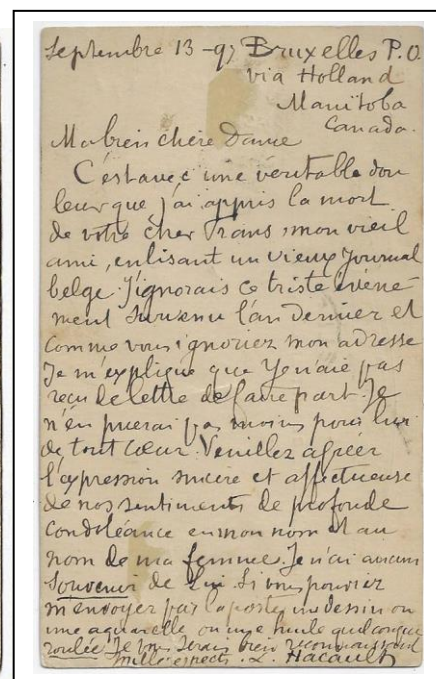 Septembre 13 - 97 Bruxelles P.O.
via Holland
Manitoba
Canada.
Ma bien chère Dame
C'est avec une véritable dou
leur que j'ai appris la mort
de votre cher Frans, mon vieil
ami, en lisant un vieux Journal
belge. J'ignorais ce triste événe
ment survenu l'an dernier et
comme vous ignoriez mon adresse
Je m'explique que Je n'aie pas
reçu de lettre de faire part. Je
n'en prierai pas moins pour lui
de tout cœur. Veuillez agréer
l'expression sincère et affectueuse
de nos sentiments de profonde
condoléance en mon nom et au
nom de ma femme. Je n'ai aucun
souvenir de Lui. Si vous pouviez
m'envoyer par la poste, un dessin ou
une aquarelle, ou une huile quelconque
roulée Je vous serais bien reconnaissant
Mille respects. L. Hacault